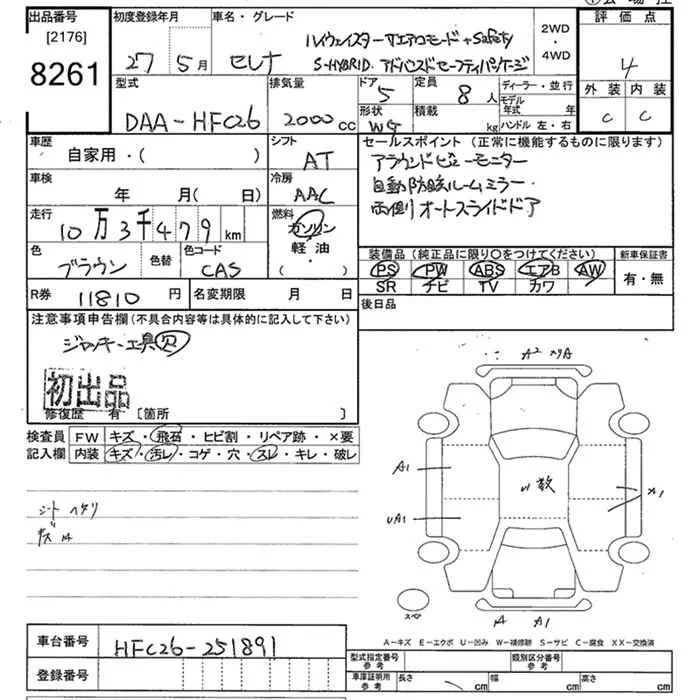 ①会場控
出品番号 初度登録年月 車名・グレード 評価点
[2176]
8261
27 5月 セレナ
ハイウェイスターVエアロモード+Safety
S-HYBRID アドバンスドセーフティパッケージ
2WD
・
4WD
4
外装 内装
C C
型式 DAA-HFC26
排気量 2000cc
ドア 5
定員 8人
形状 WG
積載 kg
ディーラー・並行
モデル年式 年
ハンドル 左・右
車歴 自家用・( )
シフト AT
セールスポイント(正常に機能するものに限ります)
アラウンドビューモニター
自動防眩ルームミラー
両側オートスライドドア
車検 年 月(日)
冷房 AAC
走行 10万3千479km
燃料 ガソリン
軽・油
( )
色 ブラウン
色替
色コード CAS
装備品(純正品に限り〇をつけてください) 新車保証書
PS PW ABS エアB AW
SR ナビ TV カワ
有・無
R券 11810円
名変期限 月 日
後日品
注意事項申告欄(不具合内容等は具体的に記入して下さい)
ジャッキー工具欠
初出品
修復歴 有 [箇所 ]
検査員 FW キズ・飛石・ヒビ割・リペア跡・×要
記入欄 内装 キズ・汚レ・コゲ・穴・スレ・キレ・破レ
シート ヘタリ
A2
A1
UA1
U数
X1
スペア
A A1
A-キズ E-エクボ U-凹み W-補修跡 S-サビ C-腐食 XX-交換済
車台番号 HFC26-251891
登録番号
型式指定番号 参考
類別区分番号 参考
車庫証明用 参考 長さ cm 幅 cm 高さ cm